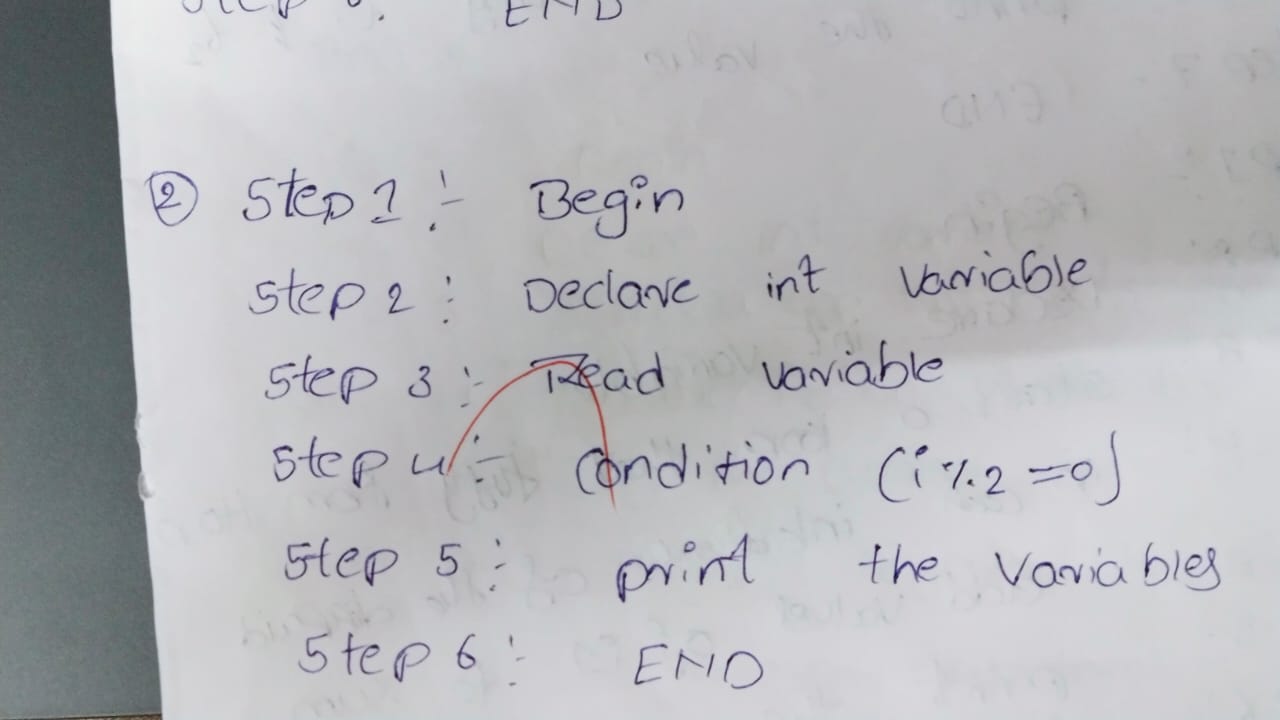 Step END
② Step 1 :- Begin
Step 2 : Declare int variable
Step 3 :- Read variable
Step 4 :- Condition (i % 2 = 0)
Step 5 :- print the variables
Step 6 :- END